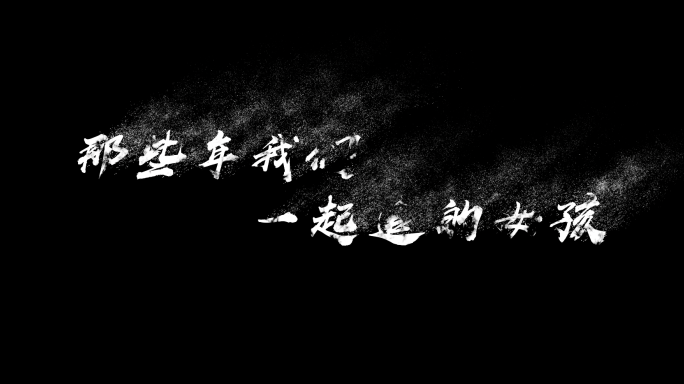 那些年我们
一起追的女孩